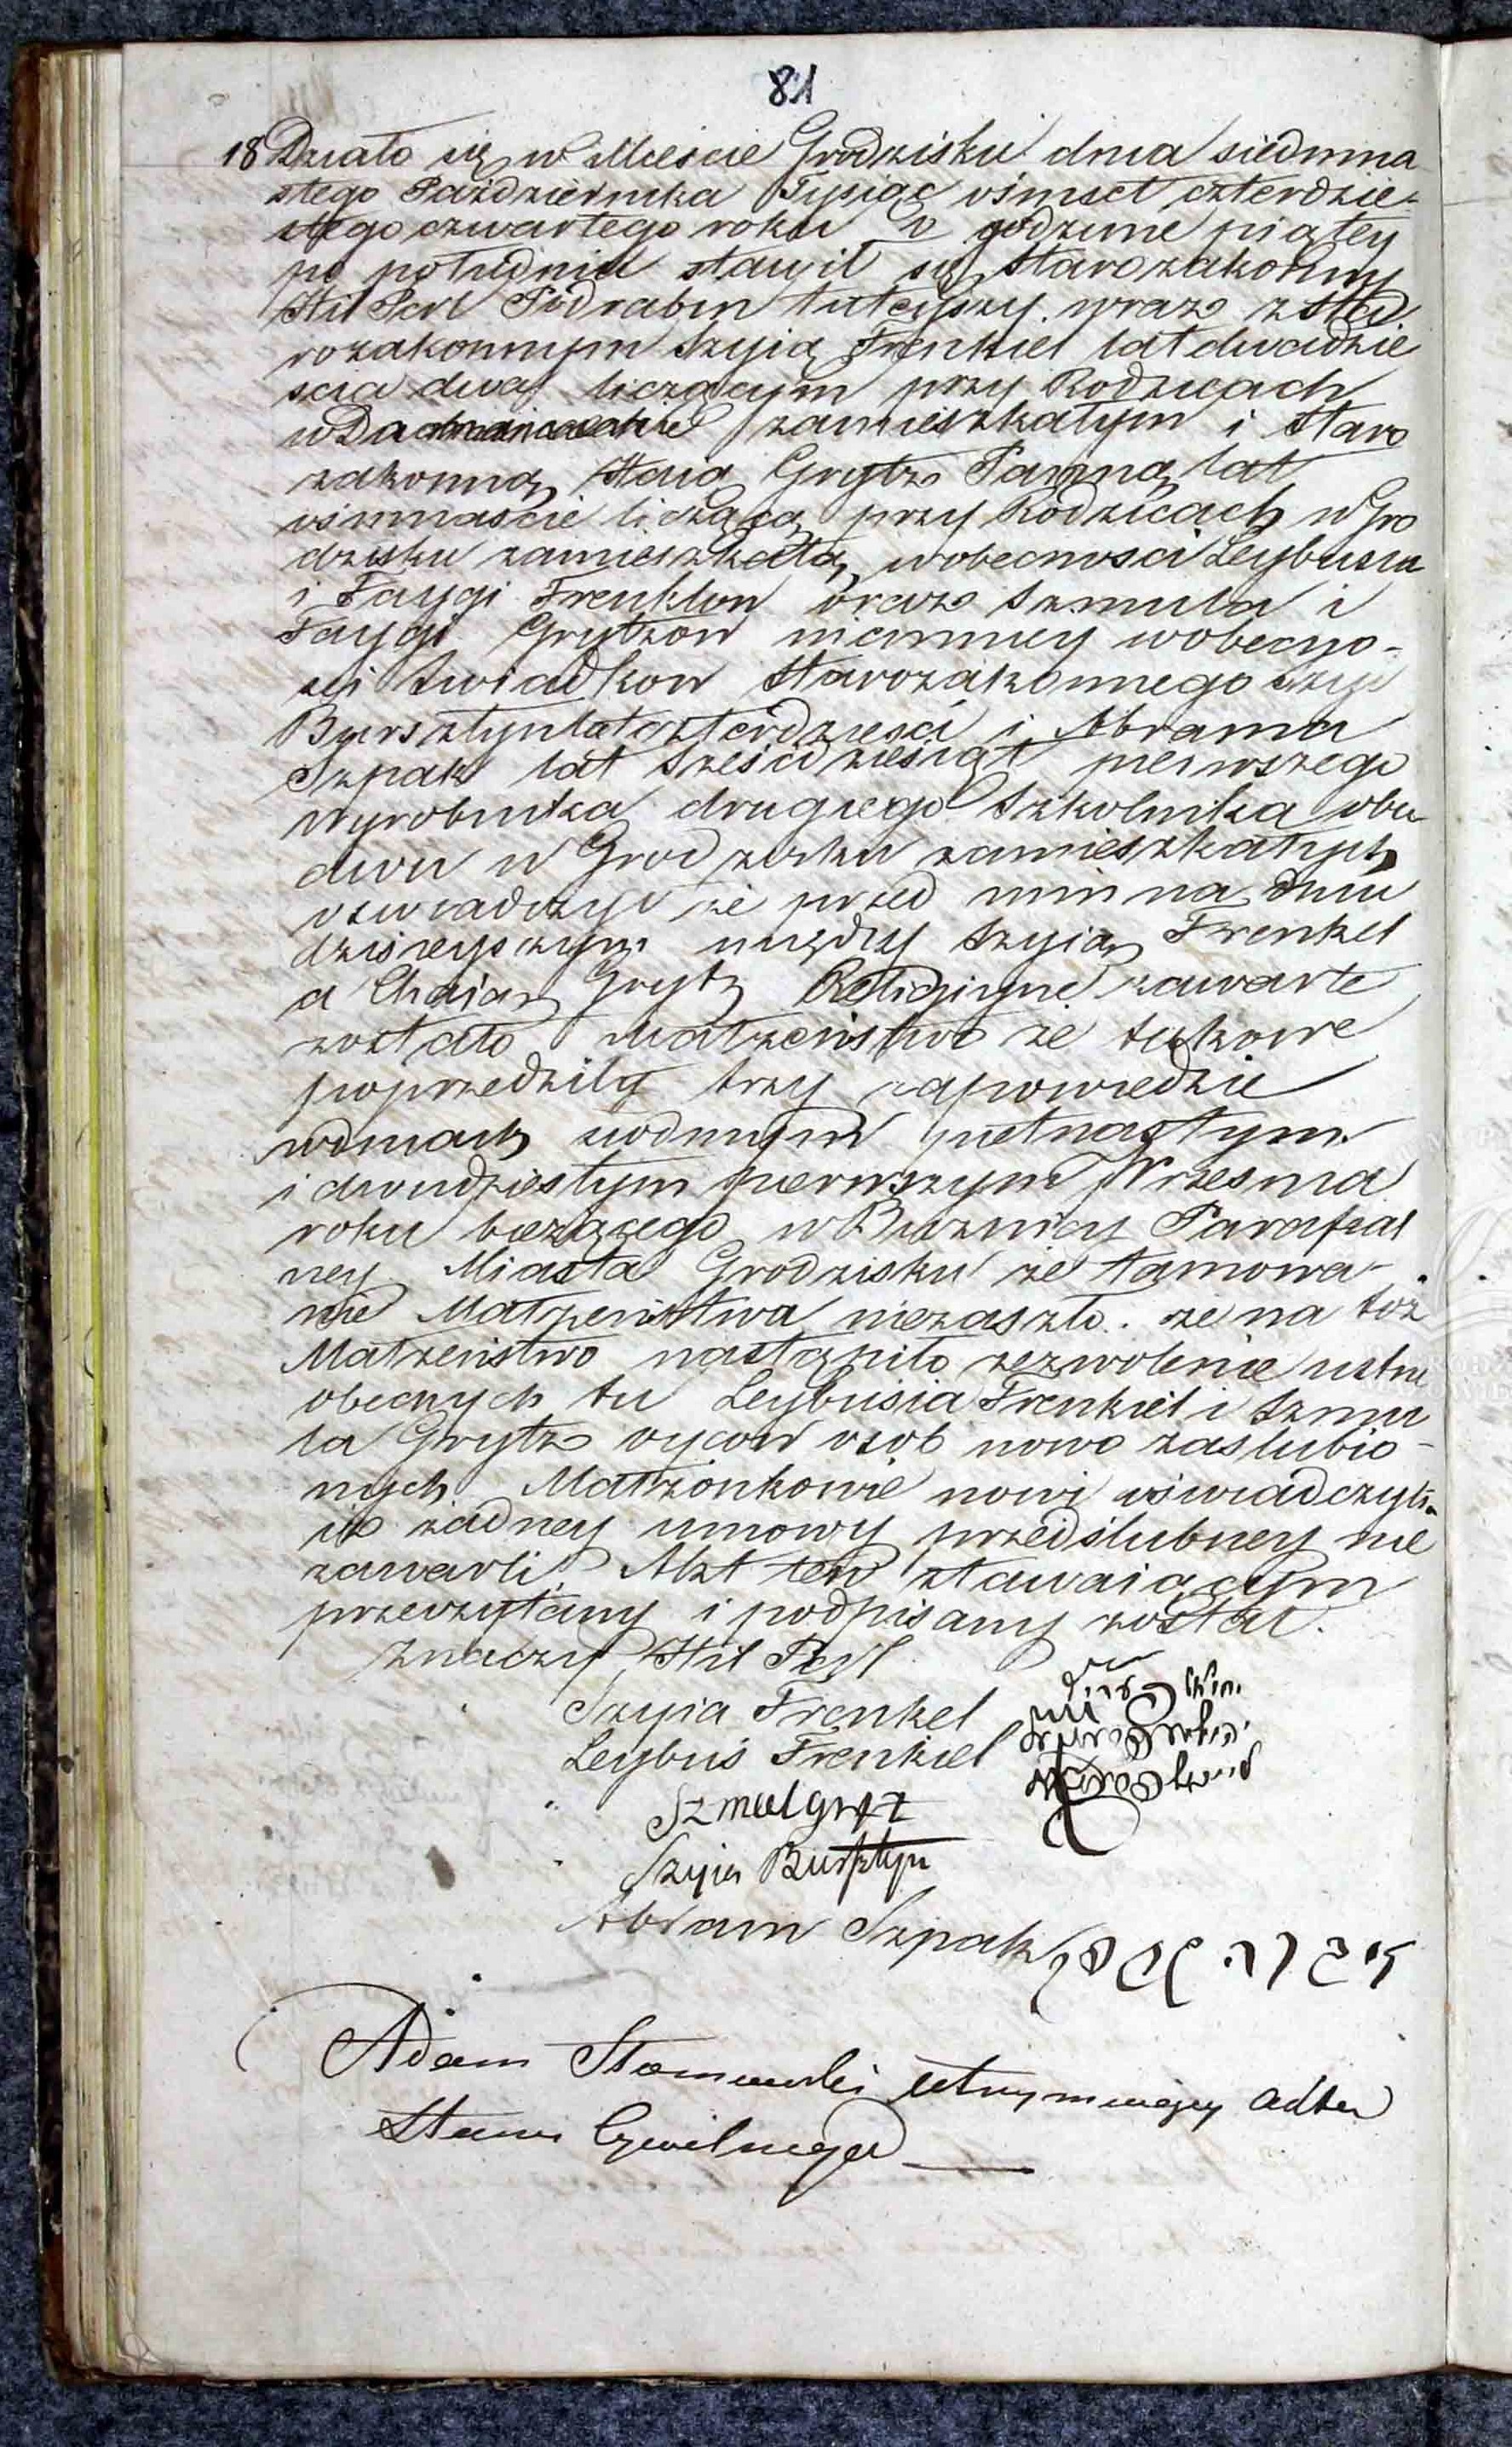 81
18 Działo się w Mieście Grodzisku dnia siedmna
stego Października Tysiąc ośmset czterdzie-
stego czwartego roku o godzinie piątey
po południu stawił się starozakonny
Hil Perl Podrabin tuteyszy wraz z sta
rozakonnym Szyią Frenkiel lat dwadzie
scia dwa liczącym przy Rodzicach
w zamieszkałym i Staro
zakonną Haią Grytz Panną lat
ośmnaście liczącą przy Rodzicach w Gro
dzisku zamieszkałą, w obecności Leybusia
i Faygi Frenklow oraz Szmula i
Faygi Grytzow niemniey w obecno-
sci Swiadkow Starozakonnego Szyi
Bursztyn lat czterdziesci i Abrama
Szpak lat sześćdziesiąt pierwszego
wyrobnika drugiego Szkolnika obu
dwu w Grodzisku zamieszkałych
oswiadczył że przed nim na dniu
dzisieyszym między Szyią Frenkel
a Chaią Grytz Religijne zawarte
zostało Małżeństwo że takowe
poprzedziły trzy zapowiedzie
w dniach siodmym pietnastym
i dwudziestym pierwszym Wrzesnia
roku bieżącego w Buznicy Parafial
ney Miasta Grodzisku że tamowa-
nie Małżeństwa niezaszło. że na toż
Małżeństwo nastąpiło zezwolenie ustne
obecnych tu Leybusia Frenkiel i Szmu
la Grytz oycow osob nowo zaslubio-
nych. Małżonkowie nowi oświadczyli
iż żadney umowy przedślubney nie
zawarli Akt ten stawaiącym
przeczytany i podpisany został.
znaczy Hil Perl
Szyia Frenkel
Leybuś Frenkiel
Szmul Gryz
Szyia Bursztyn
Abram Szpak
Adam utrzymujący Akta
Stanu Cywilnego